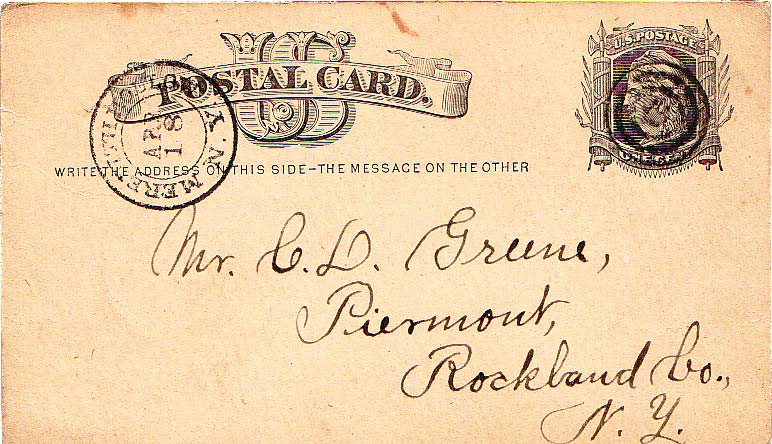 US
POSTAL CARD.
U.S. POSTAGE
ONE CENT
N.Y.
APR
18
WRITE THE ADDRESS ON THIS SIDE–THE MESSAGE ON THE OTHER
Mr. C. D. Greene,
Piermont,
Rockland Co.,
N. Y.